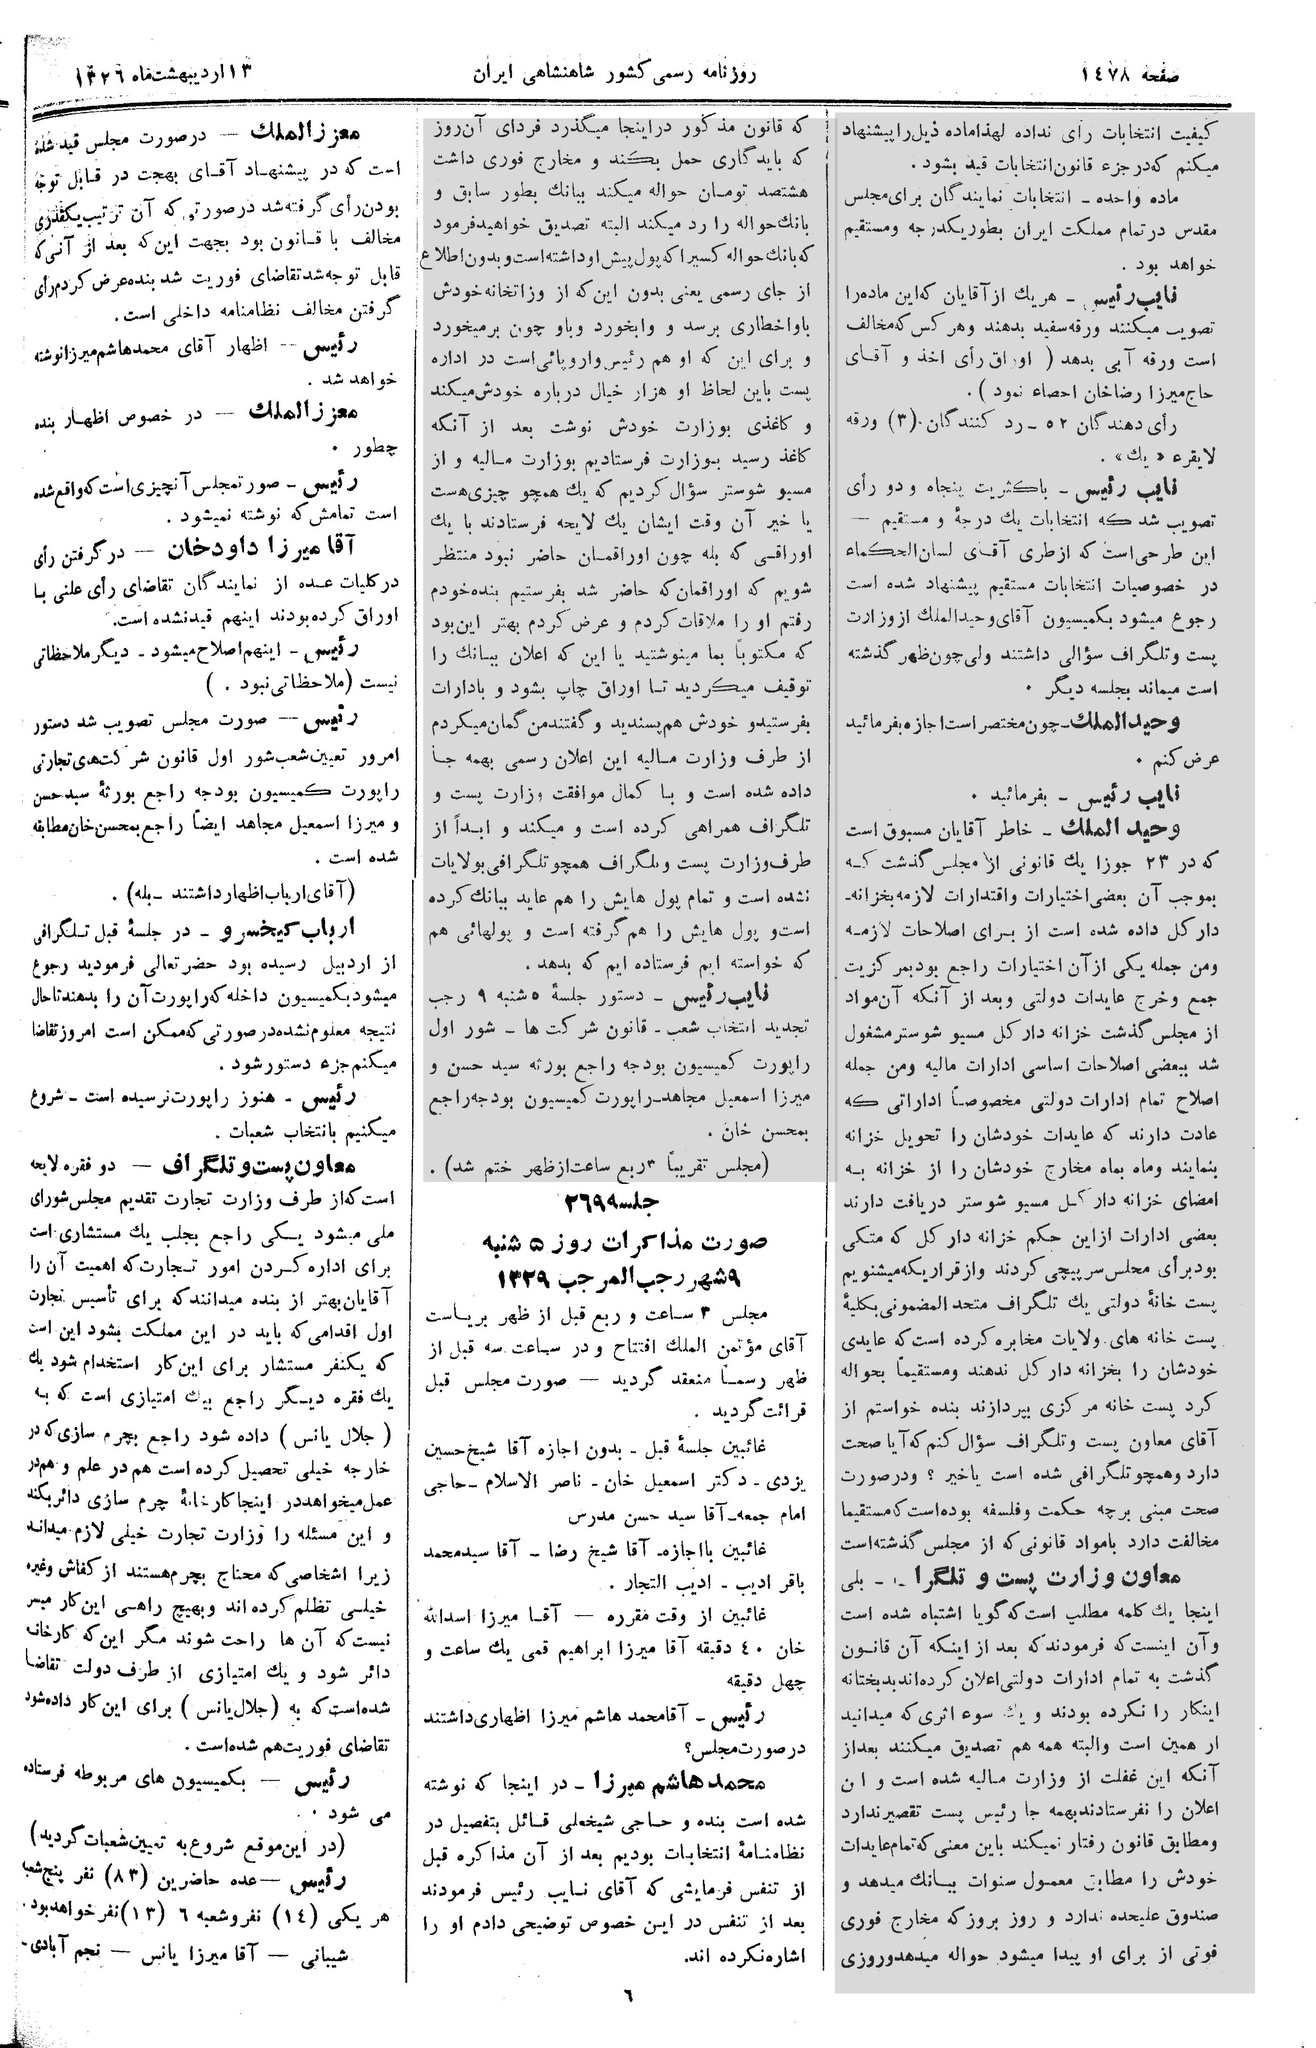 صفحه ۱٤۷۸
روزنامه رسمی کشور شاهنشاهی ایران
۱۳ اردیبهشت‌ماه ۱۳۲٦
کیفیت انتخابات رأی نداده لهذا ماده ذیل را پیشنهاد
میکنم که در جزء قانون انتخابات قید بشود.
ماده واحده ـ انتخابات نمایندگان برای مجلس
مقدس در تمام مملکت ایران بطور یکدرجه و مستقیم
خواهد بود .
نایب رئیس ـ هریك از آقایان که این ماده را
تصویب میکنند ورقه سفید بدهند و هر کس که مخالف
است ورقه آبی بدهد ( اوراق رأی اخذ و آقای
حاج میرزا رضاخان احصاء نمود ) .
رأی دهندگان ٥۲ ـ رد کنندگان (۳) ورقه
لایقرء « یك» .
نایب رئیس ـ باکثریت پنجاه و دو رأی
تصویب شد که انتخابات یك درجۀ و مستقیم —
این طرحی است که از طری آقای لسان الحکماء
در خصوصیات انتخابات مستقیم پیشنهاد شده است
رجوع میشود بکمیسیون آقای وحید الملك از وزارت
پست و تلگراف سؤالی داشتند ولی چون ظهر گذشته
است میماند بجلسه دیگر .
وحید الملك ـ چون مختصر است اجازه بفرمائید
عرض کنم .
نایب رئیس ـ بفرمائید .
وحید الملك ـ خاطر آقایان مسبوق است
که در ۲۳ جوزا یك قانونی از مجلس گذشت که
بموجب آن بعضی اختیارات و اقتدارات لازمه بخزانه‌ـ
دار کل داده شده است از برای اصلاحات لازمه
ومن جمله یکی از آن اختیارات راجع بود بمرکزیت
جمع و خرج عایدات دولتی و بعد از آنکه آن مواد
از مجلس گذشت خزانه دار کل مسیو شوستر مشغول
شد ببعضی اصلاحات اساسی ادارات مالیه ومن جمله
اصلاح تمام ادارات دولتی مخصوصاً اداراتی که
عادت دارند که عایدات خودشان را تحویل خزانه
بنمایند و ماه بماه مخارج خودشان را از خزانه به
امضای خزانه دار کل مسیو شوستر دریافت دارند
بعضی ادارات از این حکم خزانه دار کل که متکی
بود برأی مجلس سرپیچی کردند و از قراریکه میشنویم
پست خانۀ دولتی یك تلگراف متحد المضمونی بکلیۀ
پست خانه های ولایات مخابره کرده است که عایدی
خودشان را بخزانه دار کل ندهند ومستقیماً بحواله
کرد پست خانه مرکزی بپردازند بنده خواستم از
آقای معاون پست و تلگراف سؤال کنم که آیا صحت
دارد وهمچو تلگرافی شده است یاخیر ؟ ودرصورت
صحت مبنی برچه حکمت وفلسفه بوده است که مستقیما
مخالفت دارد بامواد قانونی که از مجلس گذشته است
معاون وزارت پست و تلگرا ـ بلی
اینجا یك کلمه مطلب است که گویا اشتباه شده است
و آن اینست که فرمودند که بعد از اینکه آن قانون
گذشت به تمام ادارات دولتی اعلان کرده‌اند بدبختانه
اینکار را نکرده بودند و یك سوء اثری که میدانید
از همین است والبته همه هم تصدیق میکنند بعد از
آنکه این غفلت از وزارت مالیه شده است و ان
اعلان را نفرستادند بهمه جا رئیس پست تقصیر ندارد
ومطابق قانون رفتار نمیکند باین معنی که تمام عایدات
خودش را مطابق معمول سنوات ببانك میدهد و
صندوق علیحده ندارد و روز بروز که مخارج فوری
فوتی از برای او پیدا میشود حواله میدهد وروزی
که قانون مذکور در اینجا میگذرد فردای آن روز
که باید گاری حمل بکند و مخارج فوری داشت
هشتصد تومان حواله میکند ببانك بطور سابق و
بانك حواله را رد میکند البته تصدیق خواهید فرمود
که بانك حواله کسیرا که پول پیش او داشته است و بدون اطلاع
از جای رسمی یعنی بدون این که از وزاتخانه خودش
باو اخطاری برسد و وابخورد و باو چون برمیخورد
و برای این که او هم رئیس واروپائی است در اداره
پست باین لحاظ او هزار خیال درباره خودش میکند
و کاغذی بوزارت خودش نوشت بعد از آنکه
کاغذ رسید بوزارت فرستادیم بوزارت مالیه و از
مسیو شوستر سؤال کردیم که یك همچو چیزی هست
یا خیر آن وقت ایشان یك لایحه فرستادند با یك
اوراقی که بله چون اوراقمان حاضر نبود منتظر
شویم که اوراقمان که حاضر شد بفرستیم بنده خودم
رفتم او را ملاقات کردم و عرض کردم بهتر این بود
که مکتوباً بما مینوشتید یا این که اعلان ببانك را
توقیف میکردید تا اوراق چاپ بشود و بادارات
بفرستید و خودش هم پسندید و گفتند من گمان میکردم
از طرف وزارت مالیه این اعلان رسمی بهمه جا
داده شده است و با کمال موافقت وزارت پست و
تلگراف همراهی کرده است و میکند و ابداً از
طرف وزارت پست و تلگراف همچو تلگرافی بولایات
نشده است و تمام پول هایش را هم عاید ببانك کرده
است و پول هایش را هم گرفته است و پولهائی هم
که خواسته ایم فرستاده ایم که بدهد .
نایب رئیس ـ دستور جلسۀ ٥ شنبه ۹ رجب
تجدید انتخاب شعب ـ قانون شرکت ها ـ شور اول
راپورت کمیسیون بودجه راجع بورثه سید حسن و
میرزا اسمعیل مجاهد ـ راپورت کمیسیون بودجه راجع
بمحسن خان .
(مجلس تقریباً ۳ ربع ساعت از ظهر ختم شد) .
جلسه ۲٦۹
صورت مذاکرات روز ٥ شنبه
۹ شهر رجب المرجب ۱۳۲۹
مجلس ۳ ساعت و ربع قبل از ظهر بریاست
آقای مؤتمن الملك افتتاح و در ساعت سه قبل از
ظهر رسماً منعقد گردید — صورت مجلس قبل
قرائت گردید .
غائبین جلسۀ قبل ـ بدون اجازه آقا شیخ حسین
یزدی ـ دکتر اسمعیل خان ـ ناصر الاسلام ـ حاجی
امام جمعه ـ آقا سید حسن مدرس
غائبین بااجازه ـ آقا شیخ رضا ـ آقا سید محمد
باقر ادیب ـ ادیب التجار .
غائبین از وقت مقرره — آقا میرزا اسدالله
خان ٤۰ دقیقه آقا میرزا ابراهیم قمی یك ساعت و
چهل دقیقه
رئیس ـ آقا محمد هاشم میرزا اظهاری داشتند
در صورت مجلس؟
محمد هاشم میرزا ـ در اینجا که نوشته
شده است بنده و حاجی شیخعلی قائل بتفصیل در
نظامنامۀ انتخابات بودیم بعد از آن مذاکره قبل
از تنفس فرمایشی که آقای نایب رئیس فرمودند
بعد از تنفس در این خصوص توضیحی دادم او را
اشاره نکرده اند.
معزز الملك — در صورت مجلس قید شده
است که در پیشنهاد آقای بهجت در قابل توجه
بودن رأی گرفته شد در صورتی که آن ترتیب یکقدری
مخالف با قانون بود بجهت این که بعد از آنی که
قابل توجه شد تقاضای فوریت شد بنده عرض کردم رأی
گرفتن مخالف نظامنامه داخلی است .
رئیس — اظهار آقای محمد هاشم میرزا نوشته
خواهد شد .
معزز الملك — در خصوص اظهار بنده
چطور .
رئیس ـ صورتمجلس آنچیزی است که واقع شده
است تمامش که نوشته نمیشود .
آقا میرزا داودخان — در گرفتن رأی
در کلیات عده از نمایندگان تقاضای رأی علنی با
اوراق کرده بودند اینهم قید نشده است.
رئیس ـ اینهم اصلاح میشود ـ دیگر ملاحظاتی
نیست (ملاحظاتی نبود . )
رئیس — صورت مجلس تصویب شد دستور
امروز تعیین شعب شور اول قانون شرکت‌های تجارتی
راپورت کمیسیون بودجه راجع بورثۀ سید حسن
و میرزا اسمعیل مجاهد ایضاً راجع بمحسن خان مطابقه
شده است .
(آقای ارباب اظهار داشتند ـ بله) .
ارباب کیخسرو ـ در جلسۀ قبل تلگرافی
از اردبیل رسیده بود حضرتعالی فرمودید رجوع
میشود بکمیسیون داخله که راپورت آن را بدهند تا حال
نتیجه معلوم نشده در صورتی که ممکن است امروز تقاضا
میکنم جزء دستور شود .
رئیس ـ هنوز راپورت نرسیده است ـ شروع
میکنیم بانتخاب شعبات .
معاون پست و تلگراف — دو فقره لایحه
است که از طرف وزارت تجارت تقدیم مجلس شورای
ملی میشود یکی راجع بجلب یك مستشاری است
برای اداره کردن امور تجارت که اهمیت آن را
آقایان بهتر از بنده میدانند که برای تأسیس تجارت
اول اقدامی که باید در این مملکت بشود این است
که یکنفر مستشار برای این کار استخدام شود یك
یك فقره دیگر راجع بیك امتیازی است که به
( جلال یانس ) داده شود راجع بچرم سازی که در
خارجه خیلی تحصیل کرده است هم در علم و هم در
عمل میخواهد در اینجا کارخانۀ چرم سازی دائر بکند
و این مسئله را وزارت تجارت خیلی لازم میداند
زیرا اشخاصی که محتاج بچرم هستند از کفاش وغیره
خیلی تظلم کرده اند وبهیچ راهی این کار میسر
نیست که آن ها راحت شوند مگر این که کارخانه
دائر شود و یك امتیازی از طرف دولت تقاضا
شده است که به (جلال یانس ) برای این کار داده شود
تقاضای فوریت هم شده است .
رئیس — بکمیسیون های مربوطه فرستاده
می شود .
(در این موقع شروع به تعیین شعبات گردید)
رئیس — عده حاضرین (۸۳) نفر پنج شعبه
هر یکی (۱٤) نفر و شعبه ٦ (۱۳) نفر خواهد بود.
شیبانی — آقا میرزا یانس — نجم آبادی ـ
٦